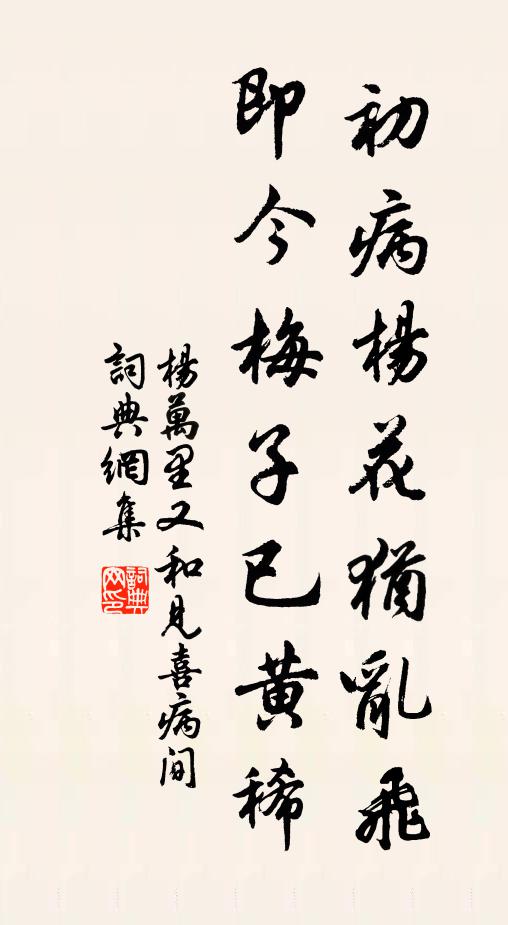 初病楊花猶亂飛
即今梅子已黄稀
楊萬里又和見喜病間
詞典網集
詞典
网印